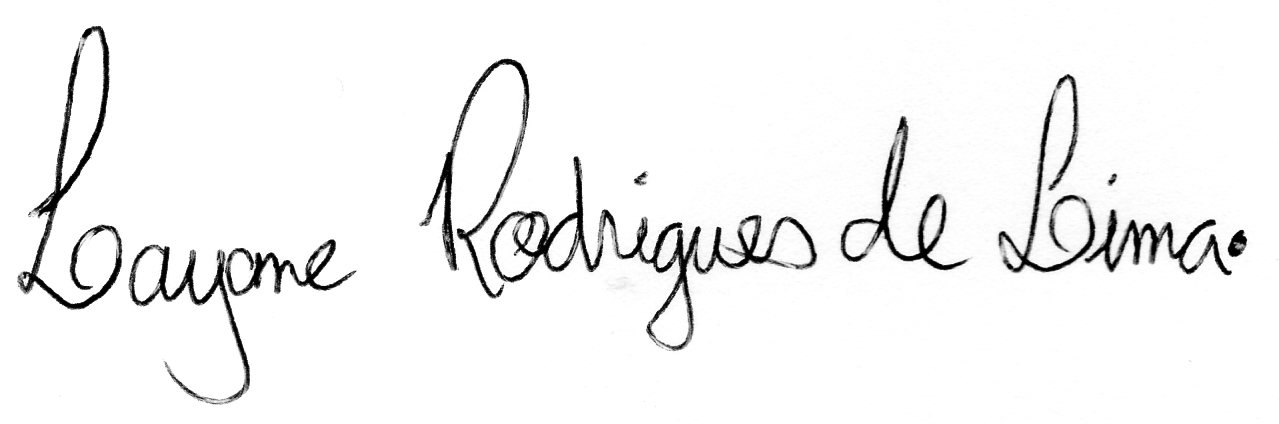 Layane Rodrigues de Lima.